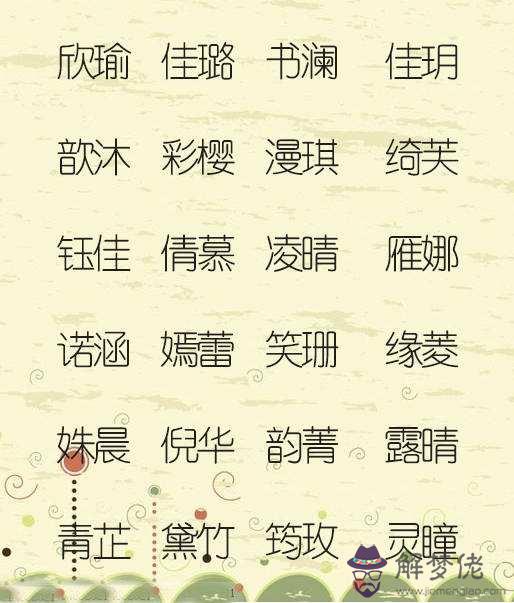 欣瑜 佳璐 书澜 佳玥
歆沐 彩樱 漫琪 绮芙
钰佳 倩慕 凌晴 雁娜
诺涵 嫣蕾 笑珊 缘菱
姝晨 倪华 韵菁 露晴
青芷 黛竹 筠玫 灵瞳
1
解梦佬
www.jiemenglao.com